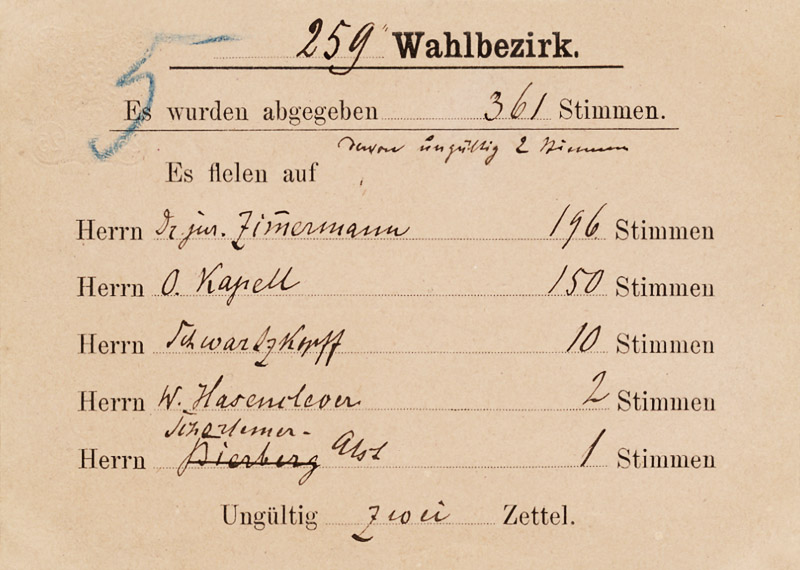 5
259 Wahlbezirk.
Es wurden abgegeben 361 Stimmen.
davon ungültig 2 Stimmen
Es fielen auf
Herrn Dr jur. Zim̄ermann 196 Stimmen
Herrn O. Kapell 150 Stimmen
Herrn Schwartzkopff 10 Stimmen
Herrn W. Hasenclever 2 Stimmen
Schorlemer-
Herrn Alst 1 Stimmen
Ungültig zwei Zettel.